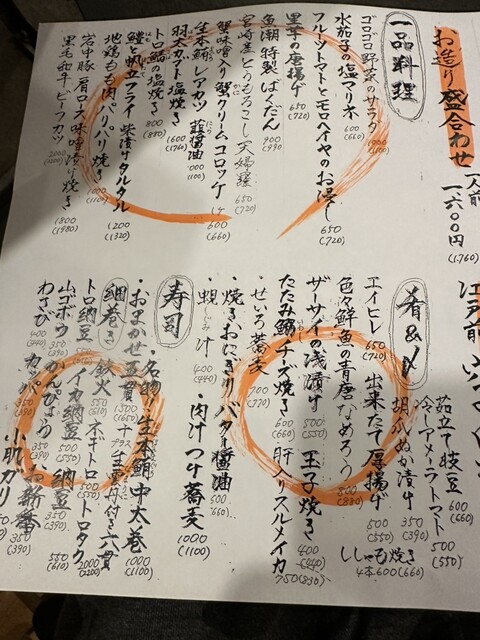 お造り盛合わせ
一人前
一六〇〇円
(1,760)
一品料理
ゴロゴロ野菜のサラダ
1000
(1100)
水茄子の塩マリネ
600
(660)
フルーツトマトとモロヘイヤのお浸し
650
(720)
里芋の唐揚げ
650
(720)
魚潮特製ばくだん
900
(990)
宮崎産とうもろこし天婦羅
650
(720)
蟹味噌入り蟹クリームコロッケ
600
(660)
生本鮪レアカツ 韮醤油
1000
(1100)
羽太カマト塩焼き
1600
(1760)
トロ鯖の塩焼き
800
(880)
鱧と帆立フライ 柴漬けタルタル
1200
(1320)
地鶏もも肉パリパリ焼き
1000
(1100)
岩中豚肩ロース味噌漬け焼き
1800
(1980)
黒毛和牛ビーフカツ
2000
江戸前
肴&〆
茹立て枝豆
600
(660)
冷ーアメーラトマト
500
(550)
胡瓜ぬか漬け
350
(390)
エイヒレ
650
(720)
出来たて厚揚げ
500
(550)
ししゃも焼き
4本600(660)
色々鮮魚の青唐なめろう
800
(880)
ザーサイの浅漬け
500
(550)
玉子焼き
400
(440)
たたみ鰯チーズ焼き
600
(660)
肝入りスルメイカ
750(830)
・せいろ蕎麦
700
(770)
・焼きおにぎり バター醤油
500
・蜆しじみ汁
400
(440)
・肉汁つけ蕎麦
1000
(1100)
寿司
・名物・生本鮪中太巻
1000
(1100)
・おまかせ五貫
1500
(1650)
プラス生雲丹付き六貫
2000
(2200)
細巻き
鉄火
550
(610)
ネギトロ
500
(550)
トロタク
550
(610)
トロ納豆
500
(550)
イカ納豆
500
(550)
納豆
350
(390)
山ゴボウ
350
(390)
かんぴょう
350
(390)
お新香
350
(390)
わさび
400
(440)
カッパ
350
(390)
小肌ガリ